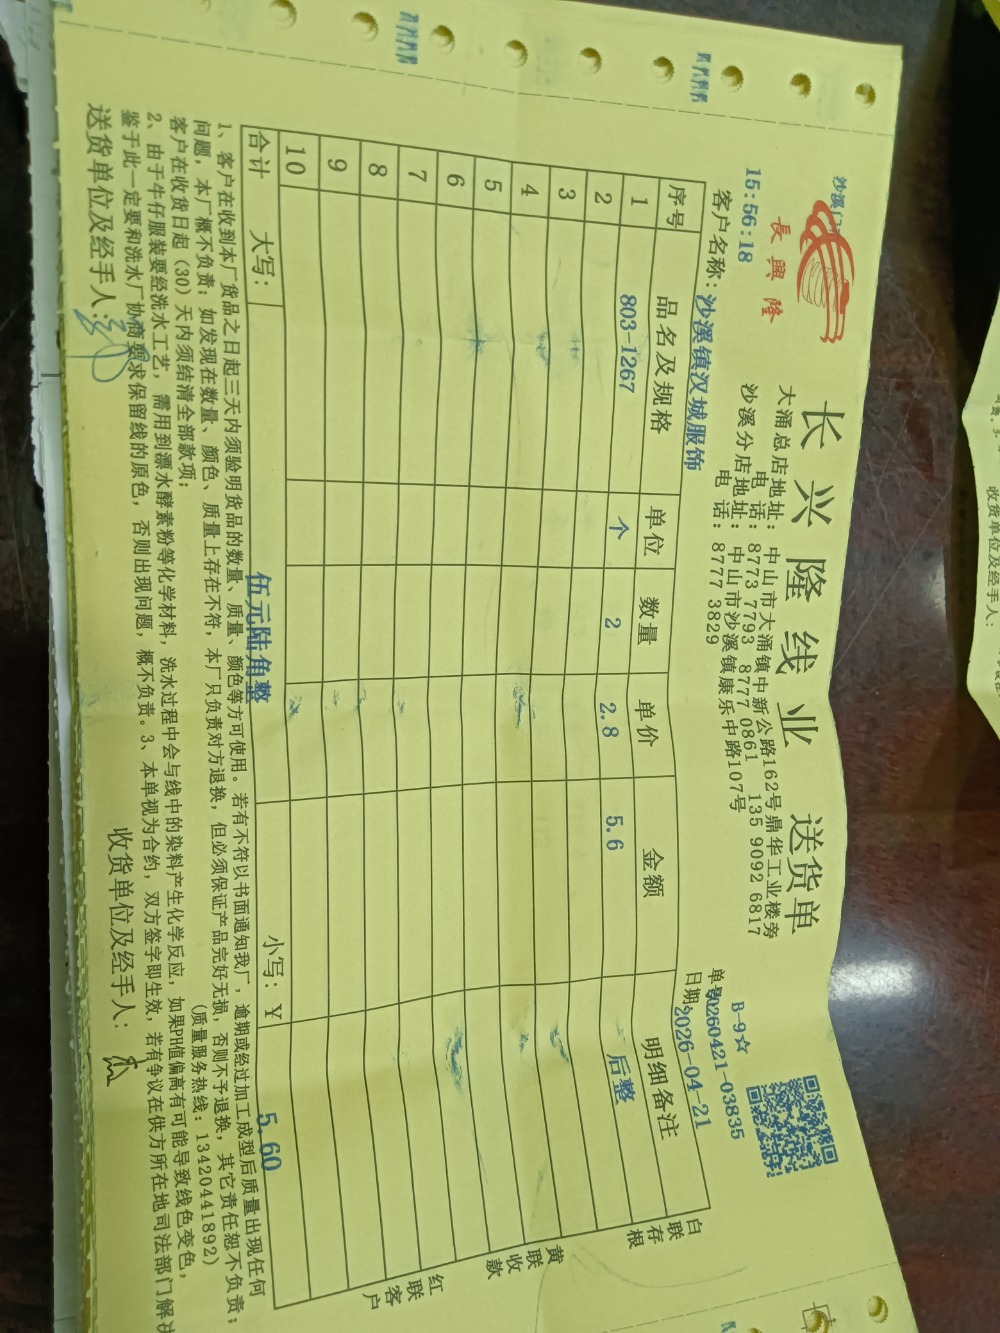 沙溪门
長興隆
长兴隆线业 送货单
大涌总店地址：中山市大涌镇中新公路162号鼎华工业楼旁
电话：8773 7793 8777 0861 135 9092 6817
沙溪分店地址：中山市沙溪镇康乐中路107号
电话：8777 3829
15:56:18
B-9☆
单号20260421-03835
客户名称：沙溪镇汉城服饰
日期2026-04-21
序号 品名及规格 单位 数量 单价 金额 明细备注
1 803-1267 个 2 2.8 5.6 后整
2
3
4
5
6
7
8
9
10
合计 大写： 伍元陆角整 小写：￥ 5.60
白联存根
黄联收款
红联客户
1、客户在收到本厂货品之日起三天内须验明货品的数量、质量、颜色等方可使用。若有不符以书面通知我厂，逾期或经过加工成型后质量出现任何
问题，本厂概不负责；如发现在数量、颜色、质量上存在不符，本厂只负责对方退换，但必须保证产品完好无损，否则不予退换，其它责任恕不负责；
客户在收货日起（30）天内须结清全部款项； （质量服务热线：13420441892）
2、由于牛仔服装要经洗水工艺，需用到漂水酵素粉等化学材料，洗水过程中会与线中的染料产生化学反应，如果PH值偏高有可能导致线色变色，
鉴于此一定要和洗水厂协商要求保留线的原色，否则出现问题，概不负责。3、本单视为合约，双方签字即生效，若有争议在供方所在地司法部门解决
送货单位及经手人： 收货单位及经手人：
收货单位及经手人：